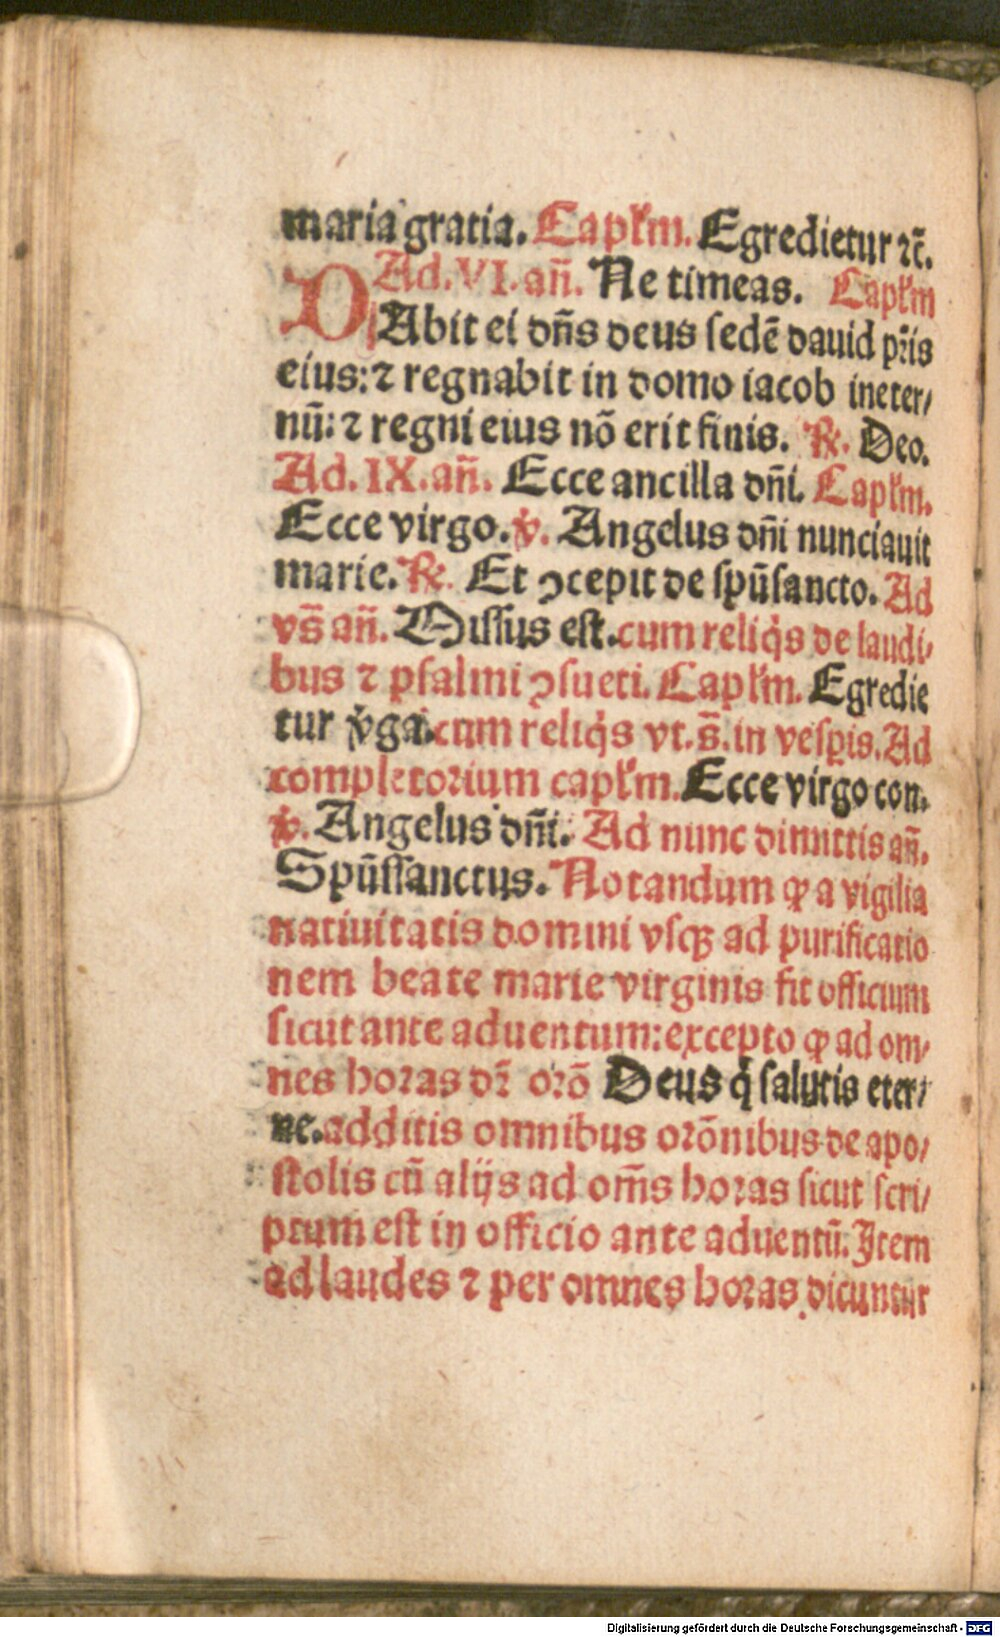 maria gratia. Capl'm. Egredietur ⁊c̄.
Ad. VI. an̄. Ne timeas. Capl'm
DAbit ei dn̄s deus sedē dauid pr̄is
eius: ⁊ regnabit in domo iacob ineter/
nū: ⁊ regni eius nō erit finis. ℟. Deo.
Ad. IX. an̄. Ecce ancilla dn̄i. Capl'm.
Ecce virgo. ℣. Angelus dn̄i nunciauit
marie. ℟. Et ꝯcepit de spūsancto. Ad
vs̄ an̄. Missus est. cum reliq̇s de laudi/
bus ⁊ psalmi ꝯsueti. Capl'm. Egredie
tur v̇ga. cum reliq̇s vt. s̄. in vesꝑis. Ad
completorium capl'm. Ecce virgo con.
℣. Angelus dn̄i. Ad nunc dimittis an̄.
Spūssanctus. Notandum ꝙ a vigilia
natiuitatis domini vsqꝫ ad purificatio
nem beate marie virginis fit officium
sicut ante aduentum: excepto ꝙ ad om/
nes horas dr̄ orō Deus q̇ salutis eter/
ne. additis omnibus orōnibus de apo/
stolis cū alijs ad om̄s horas sicut scri/
ptum est in officio ante aduentū. Item
ad laudes ⁊ per omnes horas dicuntur
Digitalisierung gefördert durch die Deutsche Forschungsgemeinschaft - DFG